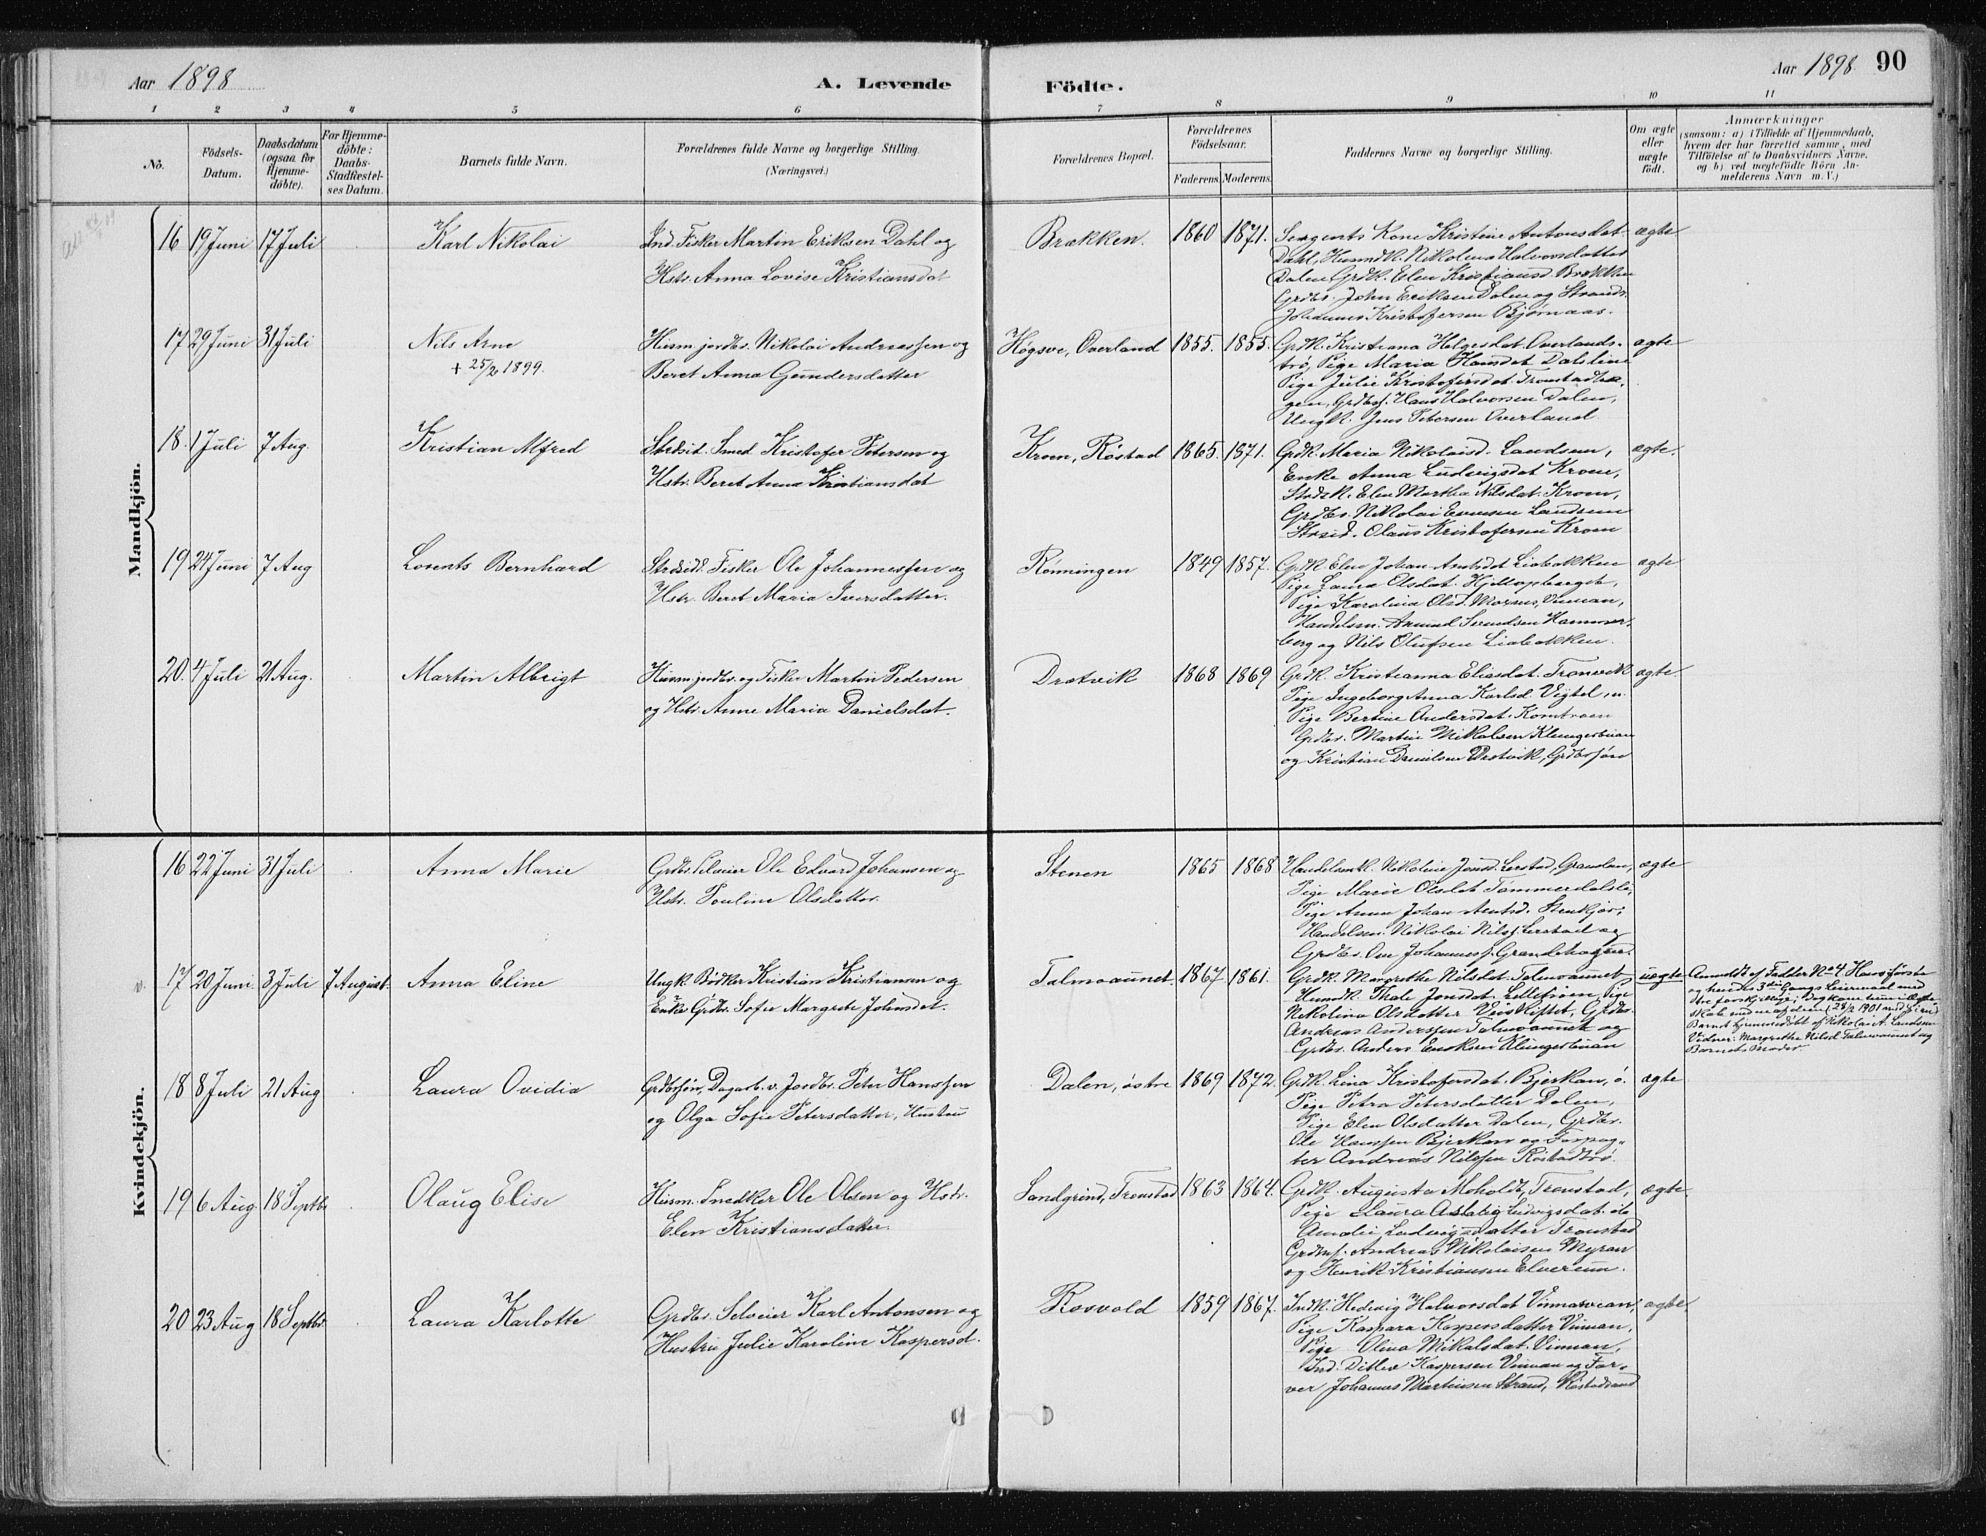 Aar 1898
A. Levende
Födte.
Aar 1898
90
1 2 3 4 5 6 7 8 9 10 11
No.
Födsels-
Datum.
Daabsdatum
(ogsaa for
Hjemme-
døbte).
For Hjemme-
døbte:
Daabs-
Stadfæstel-
ses Datum.
Barnets fulde Navn.
Forældrenes fulde Navne og borgerlige Stilling.
(Næringsvei.)
Forældrenes Bopæl.
Forældrenes
Fødselsaar.
Faderens.
Moderens.
Faddernes Navne og borgerlige Stilling.
Om ægte
eller
uægte
født.
Anmærkninger
(saasom: a) i Tilfælde af Hjemmedaab,
hvem der har forrettet samme, med
Tilföielse af to Daabsvidners Navne,
og b) ved uægtefødte Börn An-
melderens Navn m. V.)
Mandkjön.
16 19 Juni 17 Juli Karl Nikolai
Ind. Fisker Martin Eriksen Dahl og
Hstr. Anna Lovise Kristiansdat
Brækken. 1860 1871.
Sergents Kone Kristine Antonsdat
Dahl, Husmdk. Nikolina Halvorsdatter
Dalen Grdk. Elen Kristiansd. Brækken
Grdbr. John Eriksen Dalen og Strands.
Johannes Kristofersen Bjørnaas.
ægte
17 29 Juni 31 Juli Nils Arne
+ 25/2 1899.
Husm. jordbr. Nikolai Andreassen og
Beret Anna Gundersdatter
Høgsve, Overland 1855. 1855.
Grdk. Kristiana Helgesdat Overlands-
trø, Pige Maria Hansdat Dalslien
Pige Julie Kristofersdat. Tronstadhau-
gen, Grdbrs. Hans Halvorsen Dalen,
Ungk. Jens Petersen Overland.
ægte
18. 1 Juli 7 Aug. Kristian Alfred
Strdsid. Smed Kristofer Petersen og
Hstr. Beret Anna Kristiansdat
Kroen, Røstad 1865. 1871.
Grdk. Maria Nikolaisd. Landsem,
Enke Anna Ludvigsdat Kroen,
Strdsk. Elen Martha Nilsdat. Kroen,
Grdbr. Nikolai Evensen Landsem
Strsid. Olaus Kristofersen Kroen
ægte.
19 24 Juni 7 Aug Lorents Bernhard
Strdsidd. Fisker Ole Johannessen og
Hstr. Beret Maria Iversdatter.
Rønningen 1849 1857.
Grdk. Elen Johan Arntsdat Liabakken
Pige Laura Olsdat. Hjellopbergets,
Pige Karolina Olsd. Morsus, Vinnan,
Handelsm. Arnund Svendsen Hammer-
berg og Nils Olufsen Liabakken.
ægte
20. 4 Juli 21 Aug. Martin Albrigt
Husm. jordbr. og Fisker Martin Pedersen
og Hstr. Anne Maria Danielsdat.
Dratvik 1868 1869
Grdk. Kristianna Eliasdat. Tronvik
Pige Ingeborg Anna Karlsd. Vigtel, u.
Pige Bertine Andersdat. Komtroen
Grdbr. Martin Mikalsen Klungerbuan
og Kristian Danielsen Dratvik, Grdbrsøn
ægte.
Kvindekjön.
16 22 Juni 31 Juli Anna Marie
Grdbr. Selveier Ole Edvard Johansen og
Hstr. Pouline Olsdatter.
Stenen 1865 1868
Handelsmk. Nikoline Jonsd. Lerstad, Granelan,
Pige Marie Olsdat Tømmerdalslø,
Pige Anna Johan Arntsd. Stenkjør,
Handelsm. Nikolai Nils. Lerstad og
Grdbr. Ove Johannes. Grandehaugen.
ægte
v. 17 20 Juni 3 Juli 7 August Anna Eline
Ungk. Bødker Kristian Kristiansen og
Enke Grdbr. Sofie Margrete Johnsdt.
Talmoaunet 1867 1861.
Grdk. Margrethe Nilsdat. Talmoaunet,
Husmdk. Thale Jonsdat. Lillefrøm, Pige
Nikolina Olsdatter Veiskiftet, Grdbr.
Andreas Anderssen Talmoaunet og
Grdbr. Anders Enoksen Klungerbuan
uægte
Anmeldt af Fadder No 4. Hans første
og hendes 3die Gangs Leiermaal med
tre forskjellige;
Barnet hjemmedøbt af Nikolai A. Landsem
Vidner: Margrethe Nilsd Talmoaunet og
Barnets Moder.
18 8 Juli 21 Aug Laura Ovidia
Grdbrsøn, Dagarb. v. Jordbr. Peter Hanssen
og Olga Sofie Petersdatter, Hustru
Dalen, østre 1869 1872.
Grdk. Lina Kristofersdat. Bjerkan, ø.
Pige Petra Petersdatter Dalen,
Pige Elen Olsdatter Dalen, Grdbr.
Ole Hanssen Bjerkan og Forpag-
ter Andreas Nilssen Røstadtrø.
ægte
19 6 Aug 18 Septbr Olaug Elise
Husm. Snedker Ole Olsen og Hstr.
Elen Kristiansdatter.
Sandgrind, Tronstad 1863 1864.
Grdk. Augusta Moholdt, Tronstad,
Pige Laura Aslalig Ludvigsdat. ib
Amalie Ludvigsdatter Tronstad
Grdbrs. Andreas Nikolaisen Myran
og Henrik Kristiansen Elverum.
ægte.
20 23 Aug 18 Septbr Laura Karlotte
Grdbr. Selveier Karl Antonsen og
Hustru Julie Karoline Kaspersd.
Rosvold 1859 1867.
Indk. Hedvig Halvorsdat Vinnasvean,
Pige Kaspara Kaspersdatter Vinnan,
Pige Olina Mikalsdat. Vinnan,
Ind. Ditlev Kaspersen Vinnan og Far-
ver Johannes Martinsen Strand, Røstadsand
ægte.